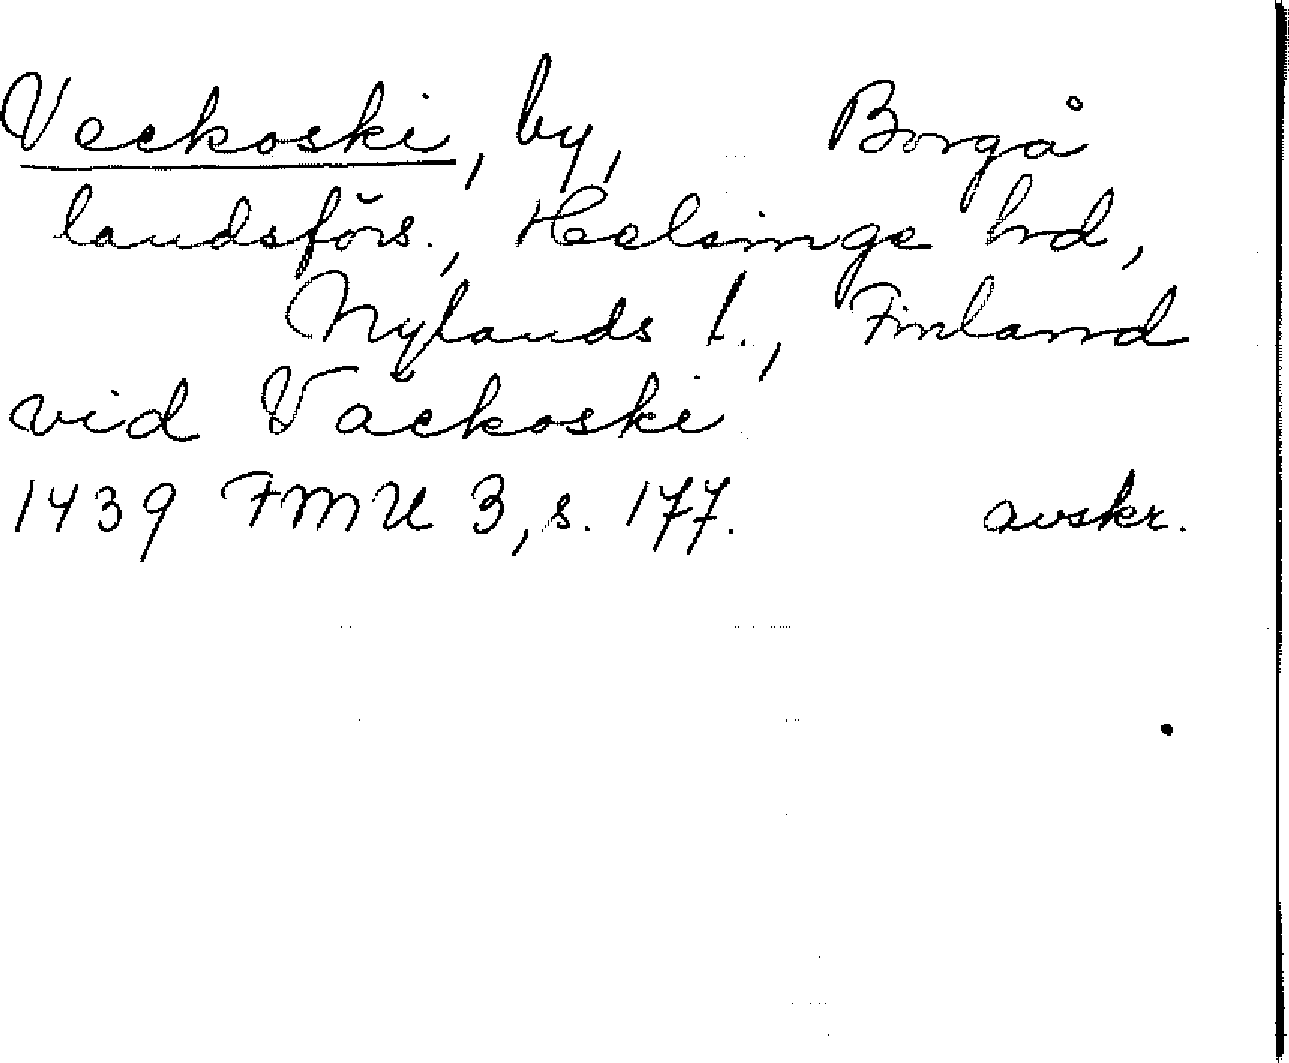 Veckoski, by, Borgå
landsförs., Helsinge hd,
Nylands l., Finland
vid Väckoski
1439 FMU 3, s. 177. avskr.